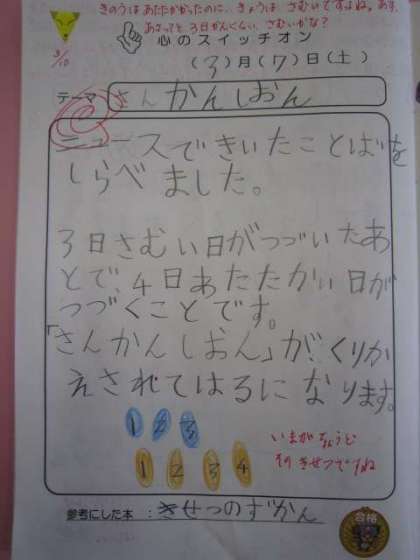 きのうは あたたかかったのに、きょうは さむいですよね。あす、
あさってと 3日かんくらい、さむいかな?
3/10
心のスイッチオン
(3)月(7)日(土)
テーマ さんかんしおん
ニュースできいたことばを
しらべました。
3日さむい日がつづいたあ
とで、4日あたたかい日が
つづくことです。
「さんかんしおん」が、くりか
えされてはるになります。
1 2 3
1 2 3 4
いまがちょうど
そのきせつですね
参考にした本 : きせつのずかん
合格